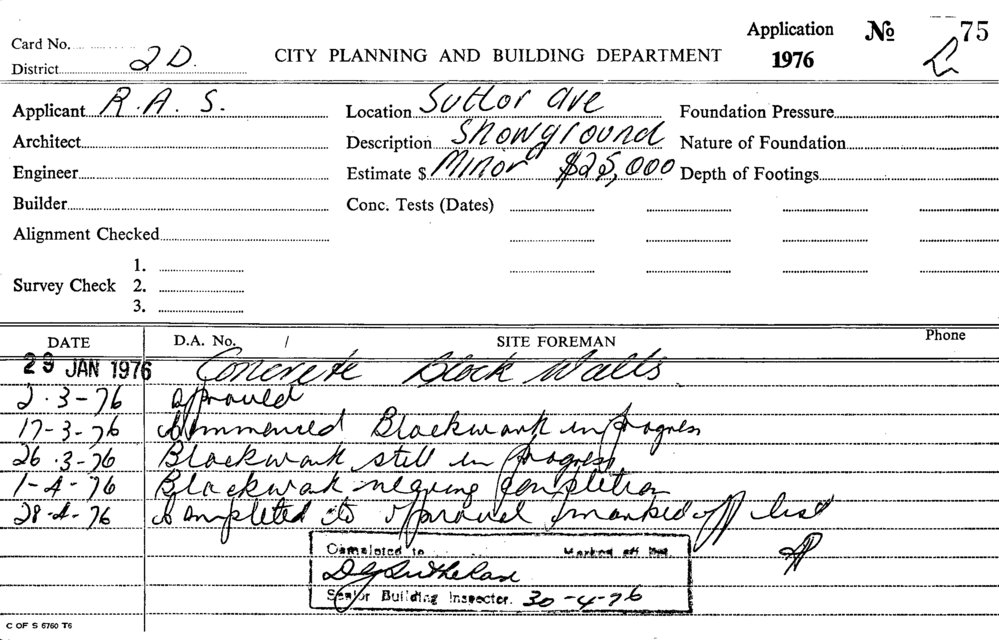 Application No 75
Card No.
1976
District 2 D. CITY PLANNING AND BUILDING DEPARTMENT
Applicant R.A.S. Location Suttor Ave Foundation Pressure
Architect Description Showground Nature of Foundation
Engineer Estimate $ Minor $25,000 Depth of Footings
Builder Conc. Tests (Dates)
Alignment Checked
1.
Survey Check 2.
3.
DATE D.A. No. / SITE FOREMAN Phone
29 JAN 1976 Concrete Block Walls.
2.3-76 approved
17-3-76 Commenced Blockwork in progress
26.3-76 Blockwork still in progress
1-4-76 Blockwork nearing completion
28-4-76 Completed to approval marked off list
Completed to Marked off list
D G Sutherland
Senior Building Inspector. 30-4-76
C OF S 6760 T6